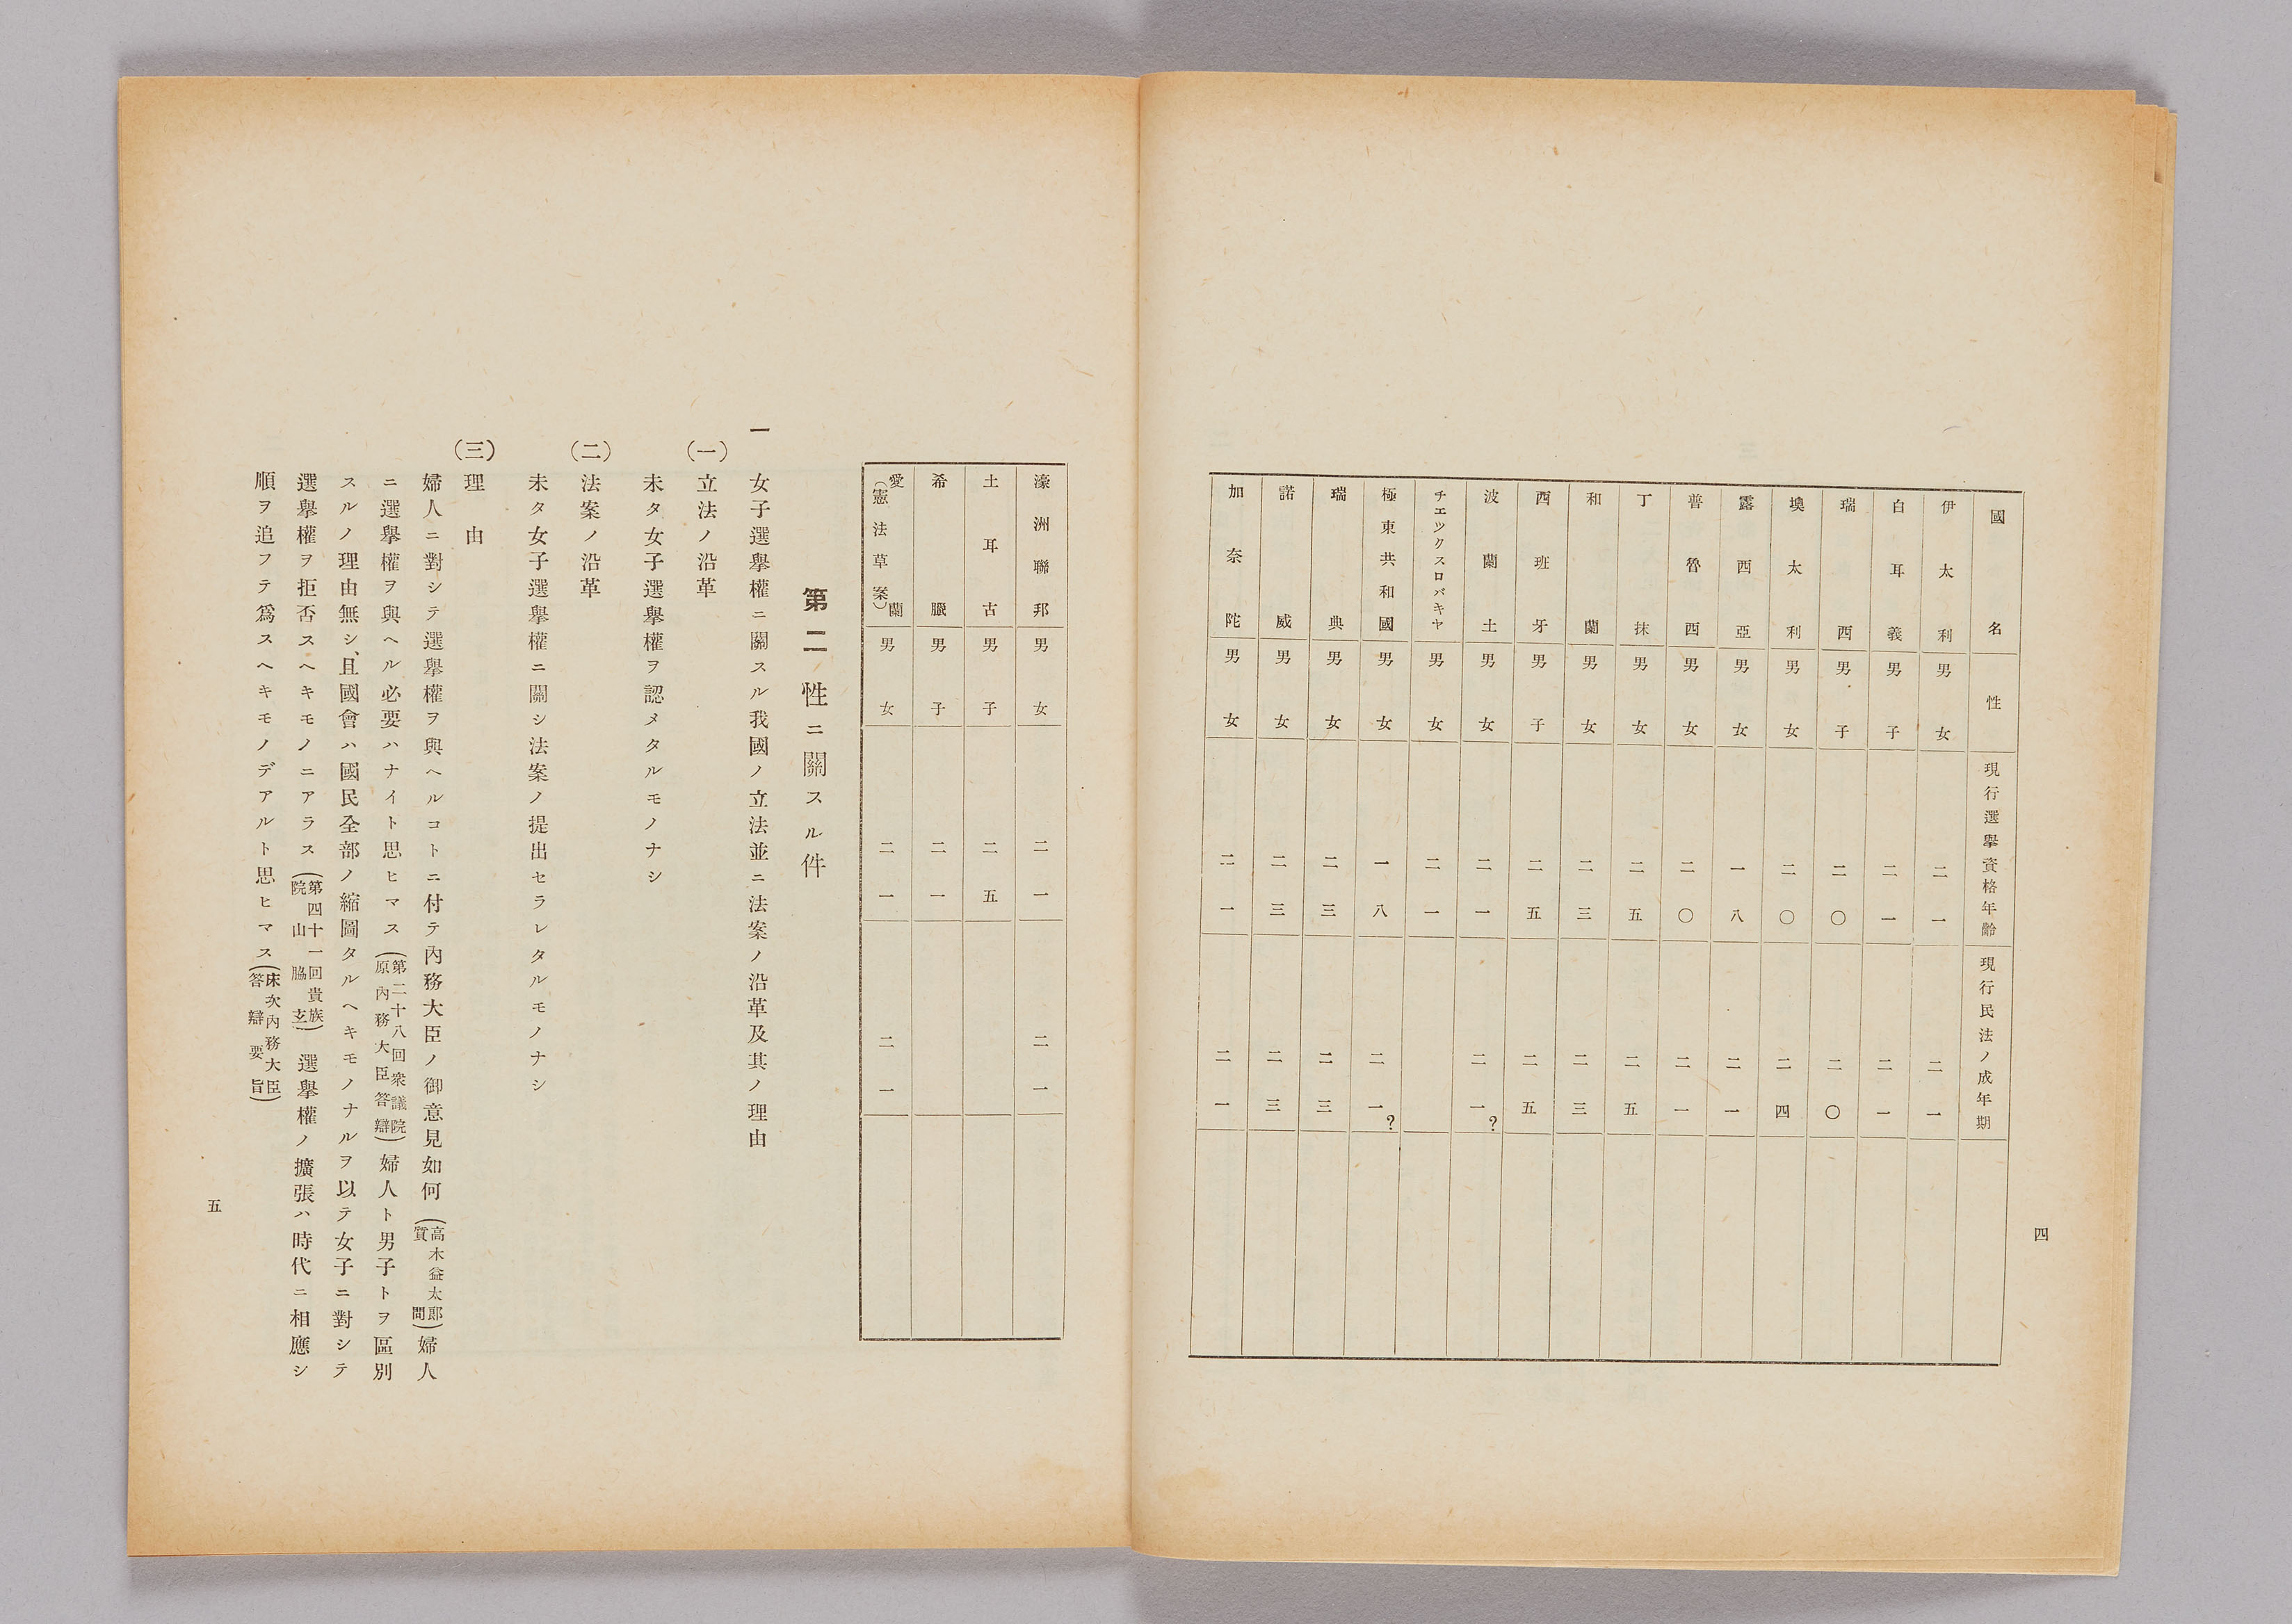 國名 性 現行選擧資格年齡 現行民法ノ成年期
伊太利 男女 二一 二一
白耳義 男子 二一 二一
瑞西 男子 二〇 二〇
墺太利 男女 二〇 二四
露西亞 男女 一八 二一
普魯西 男女 二〇 二一
丁抹 男女 二五 二五
和蘭 男女 二三 二三
西班牙 男子 二五 二五
波蘭土 男女 二一 二一?
チエツクスロバキヤ 男女 二一
極東共和國 男女 一八 二一?
瑞典 男女 二三 二三
諾威 男女 二三 二三
加奈陀 男女 二一 二一
四
濠洲聯邦 男女 二一 二一
土耳古 男子 二五
希臘 男子 二一
愛蘭(憲法草案) 男女 二一 二一
第二 性ニ關スル件
一 女子選擧權ニ關スル我國ノ立法並ニ法案ノ沿革及其ノ理由
(一) 立法ノ沿革
未タ女子選擧權ヲ認メタルモノナシ
(二) 法案ノ沿革
未タ女子選擧權ニ關シ法案ノ提出セラレタルモノナシ
(三) 理由
婦人ニ對シテ選擧權ヲ與ヘルコトニ付テ內務大臣ノ御意見如何(高木益太郞質問)婦人
ニ選擧權ヲ與ヘル必要ハナイト思ヒマス(第二十八回衆議院原內務大臣答辯)婦人ト男子トヲ區別
スルノ理由無シ、且國會ハ國民全部ノ縮圖タルヘキモノナルヲ以テ女子ニ對シテ
選擧權ヲ拒否スヘキモノニアラス(第四十一回貴族院山脇玄)選擧權ノ擴張ハ時代ニ相應シ
順ヲ追フテ爲スヘキモノデアルト思ヒマス(床次內務大臣答辯要旨)
五